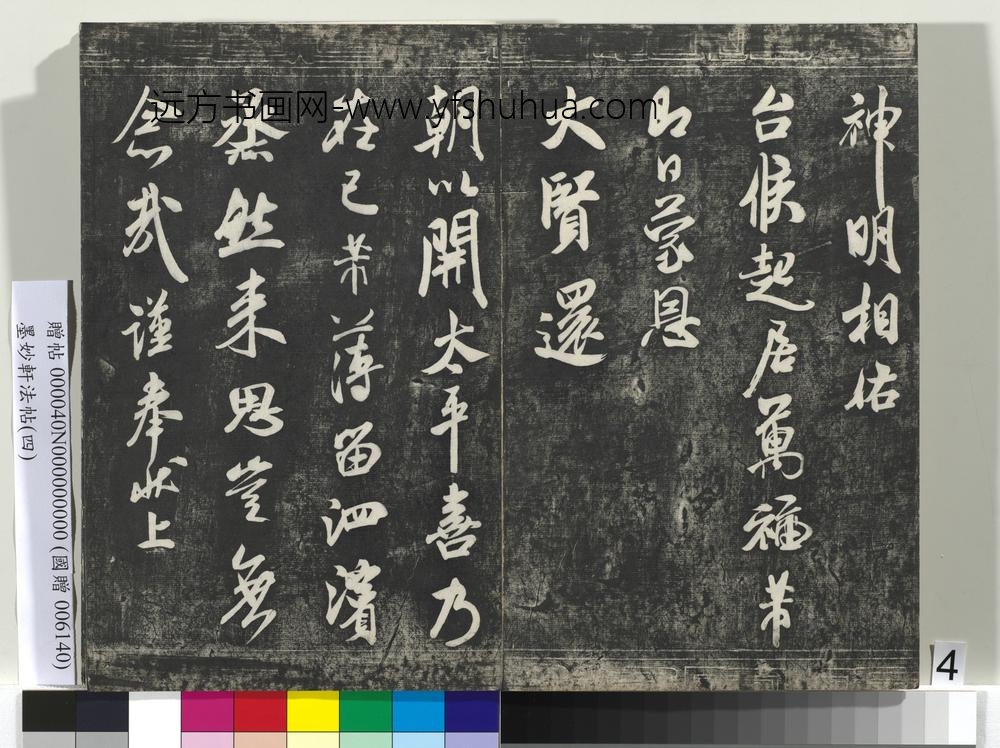 神明相佑
台候起居萬福芾
即日蒙恩
大賢還
朝以開太平喜乃
在己芾薄留泗濱
塵然來思豈無
念哉謹奉狀上
远方书画网-www.yfshuhua.com
贈帖 000040N000000000 (國贈 006140)
墨妙軒法帖(四)
4